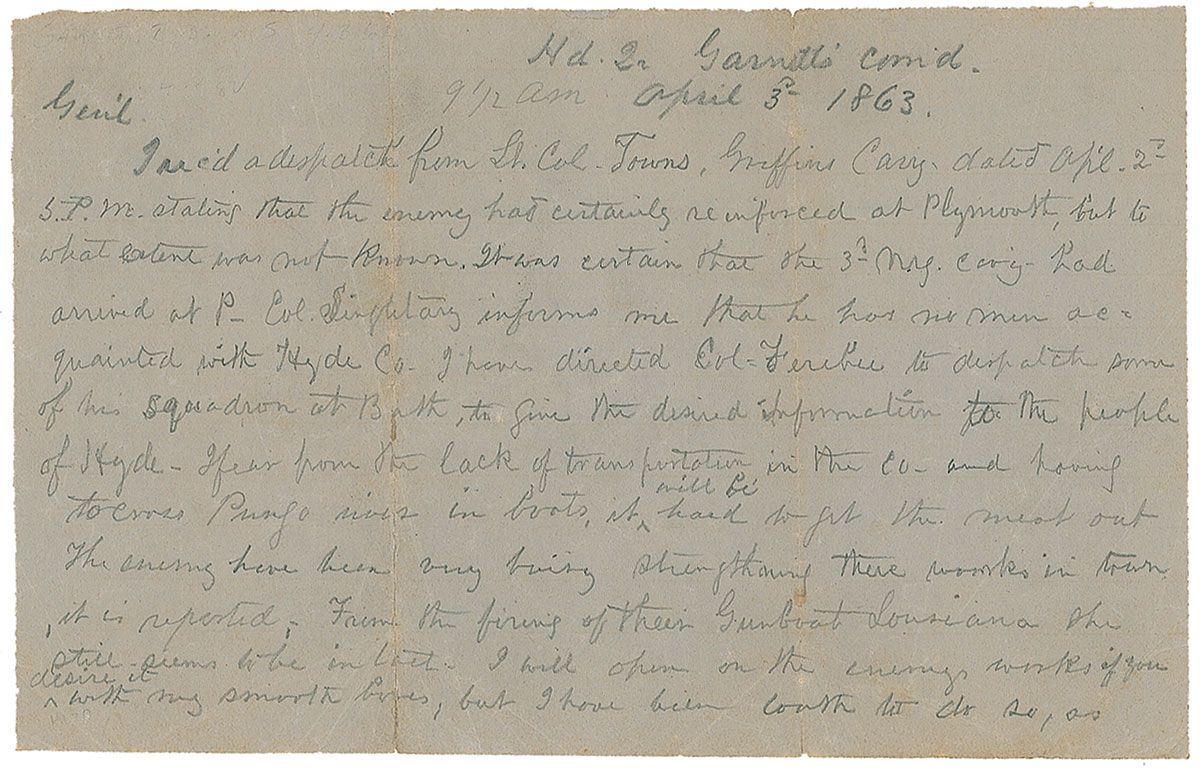 Hd. Qr Garnett's com'd.
9 1/2 am April 3d 1863.
Gen'l.
I rec'd a despatch from Lt. Col. Towns, Griffins Cavy. dated Apl. 2d
5. P. M. stating that the enemy had certainly reinforced at Plymouth, but to
what extent was not known. It was certain that the 3d N.Y. cavy had
arrived at P_ Col. Singletary informs me that he has no men ac=
quainted with Hyde Co- I have directed Col-Ferebee to despatch some
of his squadron at Bath, to give the desired information to the people
of Hyde - I fear from the lack of transportation in the co- and having
to cross Pungo river in boats, it will be hard to get the meat out
The enemy have been very buisy strengthening there woorks in town
, it is reported, - From the firing of their Gunboat Lousiana she
still seems to be in tact - I will open on the enemys works if you
desire it
with my smooth bores, but I have been loath to do so, as